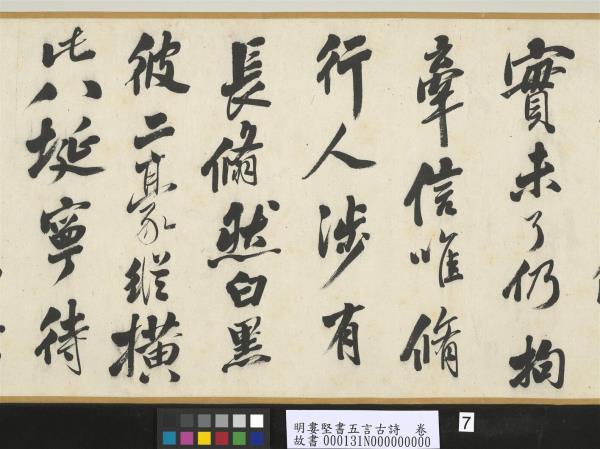 實未了仍拘
牽信唯脩
行人涉有
長翛然白黑
彼二豪縱橫
此八埏寧待
明婁堅書五言古詩 卷
故書000131N000000000
7